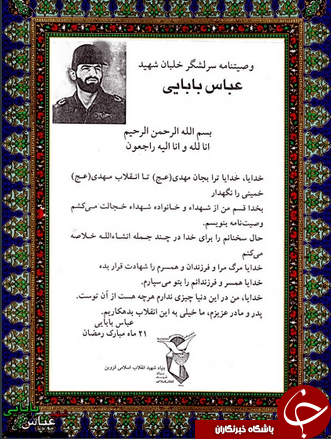 وصیتنامه سرلشگر خلبان شهید
عباس بابایی
بسم الله الرحمن الرحیم
انا لله و انا الیه راجعون
خدایا، خدایا ترا بجان مهدی(عج) تا انقلاب مهدی(عج)
خمینی را نگهدار
بخدا قسم من از شهداء و خانواده شهداء خجالت می‌کشم
وصیت‌نامه بنویسم.
حال سخنانم را برای خدا در چند جمله انشاءالله خلاصه
می‌کنم
خدایا مرگ مرا و فرزندان و همسرم را شهادت قرار بده
خدایا همسر و فرزندانم را بتو می‌سپارم.
خدایا، من در این دنیا چیزی ندارم هرچه هست از آن توست.
پدر و مادر عزیزم، ما خیلی به این انقلاب بدهکاریم.
عباس بابایی
۲۱ ماه مبارک رمضان
بنیاد شهید انقلاب اسلامی قزوین
عباس بابایی
باشگاه خبرنگاران